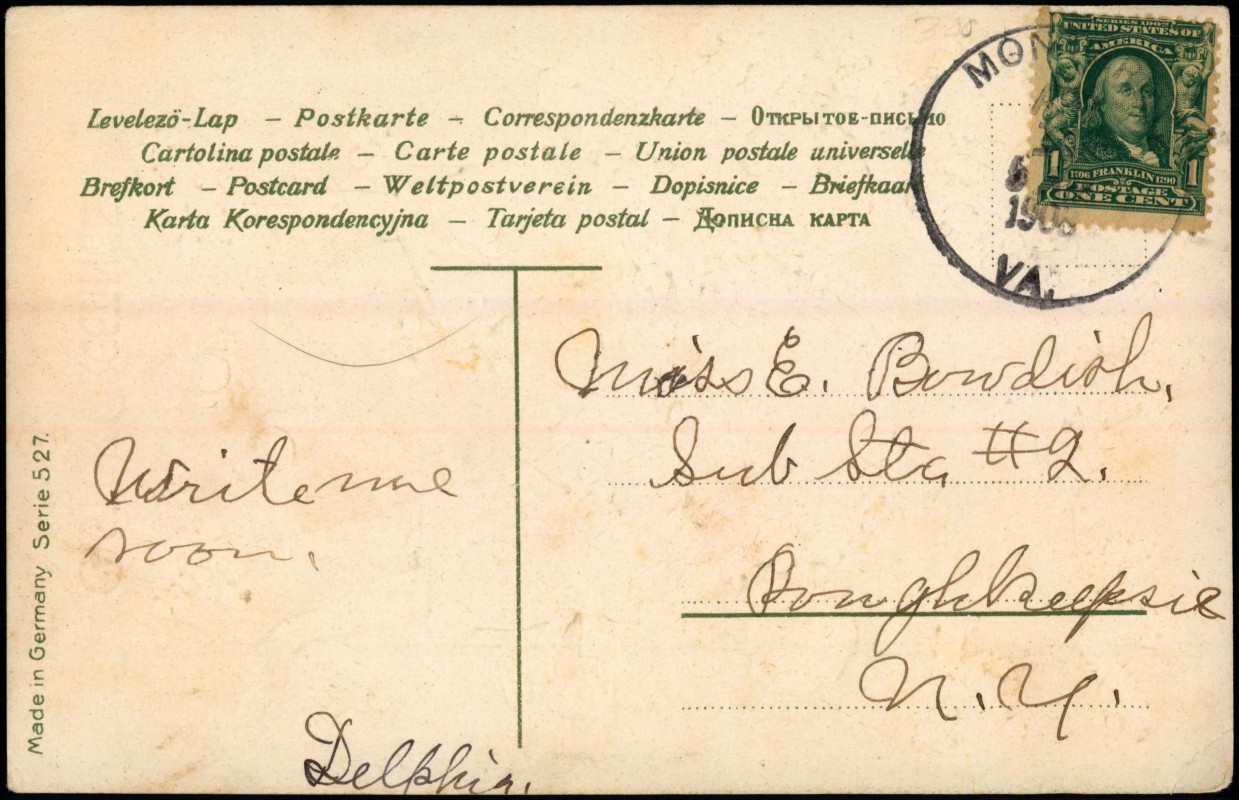 Levelező-Lap – Postkarte – Correspondenzkarte – Открытое-письмо
Cartolina postale – Carte postale – Union postale universelle
Brefkort – Postcard – Weltpostverein – Dopisnice – Briefkaart
Karta Korespondencyjna – Tarjeta postal – Дописна карта
MON
VA.
SERIES 1902
UNITED STATES OF
AMERICA
1 1
1706 FRANKLIN 1790
POSTAGE
ONE CENT
Miss E. Bowdish,
Sub Sta #2.
Poughkeepsie
N.Y.
Write me
soon.
Delphia.
Made in Germany Serie 527.